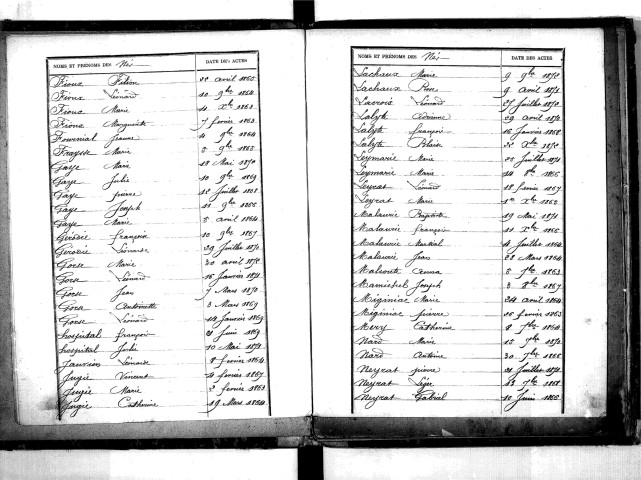 NOMS ET PRÉNOMS DES Nés
DATE DES ACTES
Fioux 22 avril 1865
Fioux Léonard 10 9bre 1864
Fioux Marie 4 Xbre 1863
Fioux Marguerite 7 février 1863
Fournial Jeanne 4 9bre 1864
Fraysse Marie 5 9bre 1865
Gaye Marie 18 Mai 1870
Gaye Julie 10 9bre 1869
Gaye pierre 12 Juillet 1868
Gaye Joseph 18 9bre 1866
Gaye Marie 5 avril 1864
Gerodie françois 10 9bre 1867
Gerodie Léonarde 29 Juillet 1872
Gora Marie 20 avril 1872
Gora Léonard 16 Janvier 1872
Gora Jean 7 Mars 1870
Gora Antoinette 3 Mars 1869
Gora Léonard 14 Janvier 1869
hospital françois 21 Juin 1869
hospital Julie 10 Mai 1872
Léonarde 8 février 1864
Jugie Vincent 4 février 1867
Jugie Marie 2 février 1863
Jugie Catherine 19 Mars 1864
NOMS ET PRÉNOMS DES Nés
DATE DES ACTES
Lachaux Marie 9 9bre 1870
Lachaux 9 avril 1872
Lacroix Léonard 27 Juillet 1870
Lalyte 29 avril 1872
Lalyte françois 16 Janvier 1868
Lalyte 22 Xbre 1870
Leymarie Marie 25 Juillet 1872
Leymarie Marie 14 8bre 1866
Leyrat Léonard 18 février 1867
Leyrat Marie 1er Xbre 1862
Malaurie Baptiste 19 Mai 1872
Malaurie françois 11 Xbre 1865
Malaurie Martial 4 Juillet 1864
Malaurie Jean 28 Mars 1864
Anna 5 7bre 1863
Joseph 3 8bre 1867
Miginiac Marie 24 avril 1864
Miginiac pierre 26 février 1863
Mery Catherine 8 7bre 1864
Nard Marie 15 9bre 1872
Nard Antoine 30 7bre 1866
Neyrat pierre 21 Juillet 1872
Neyrat 13 7bre 1868
Neyrat Gabriel 10 Juin 1866